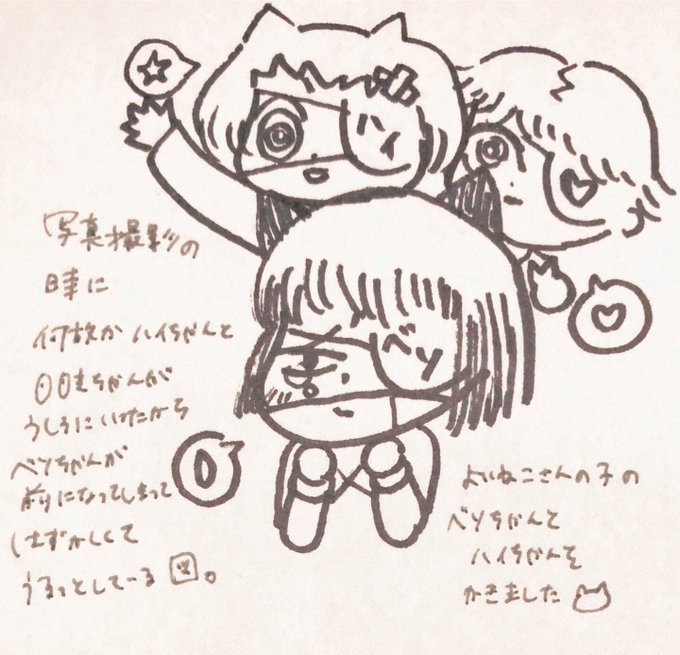 ハイ
ベソ
写真撮影の
時に
何故かハイちゃんと
ちゃんが
うしろにいけたから
ベソちゃんが
前になってしまって
はずかしくて
うるっとしている図。
よいねこさんの子の
ベソちゃんと
ハイちゃんを
かきました